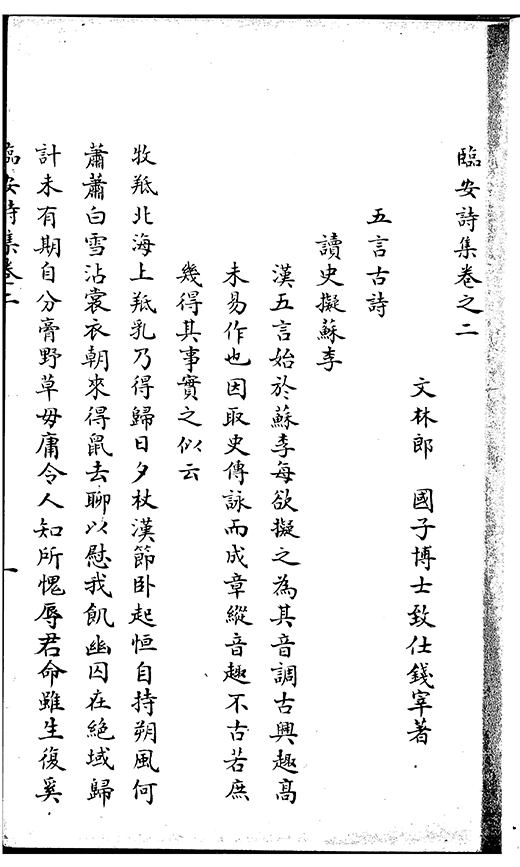 臨安詩集卷之二
文林郎 國子博士致仕錢宰著
五言古詩
讀史擬蘇李
漢五言始於蘇李每欲擬之為其音調古興趣高
未易作也因取史傳詠而成章縱音趣不古若庶
幾得其事實之似云
牧羝北海上羝乳乃得歸日夕杖漢節卧起恒自持朔風何
蕭蕭白雪沾裳衣朝來得鼠去聊以慰我飢幽囚在絶域歸
計未有期自分膏野草毋庸令人知所愧辱君命雖生復奚
臨安詩集卷二
一